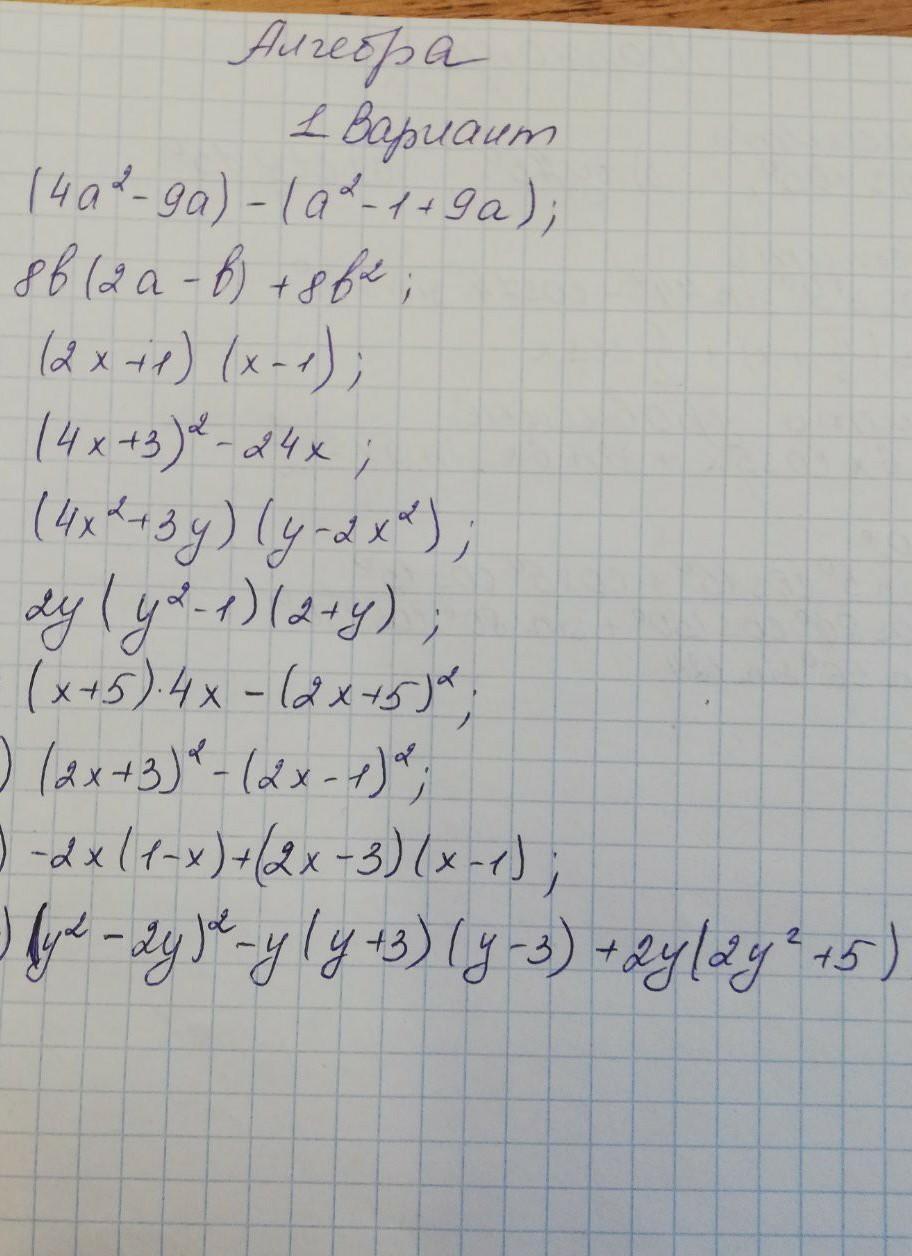 Алгебра
1 Вариант
(4a² - 9a) - (a² - 1 + 9a);
8b(2a - b) + 8b²;
(2x + 1) (x - 1);
(4x + 3)² - 24x;
(4x² + 3y) (y - 2x²);
2y(y² - 1)(2 + y);
(x + 5) · 4x - (2x + 5)²;
) (2x + 3)² - (2x - 1)²;
) -2x(1 - x) + (2x - 3) (x - 1);
) (y² - 2y)² - y(y + 3) (y - 3) + 2y(2y² + 5)